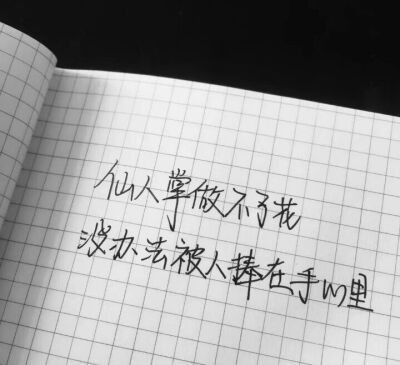 仙人掌做不了花
没办法被人捧在手心里